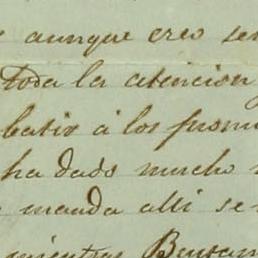 aunque creo ser
toda la atencion
batir à los
ha dado mucho
manda alli se
mientras